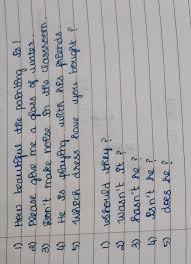 1) How beautiful the painting is!
2) Please give me a glass of water.
3) Don't make noise in the classroom.
4) He is playing with his friends.
5) Which dress have you bought?
1) Should they?
2) Wasn't it?
3) hasn't he?
4) Isn't he?
5) does he?